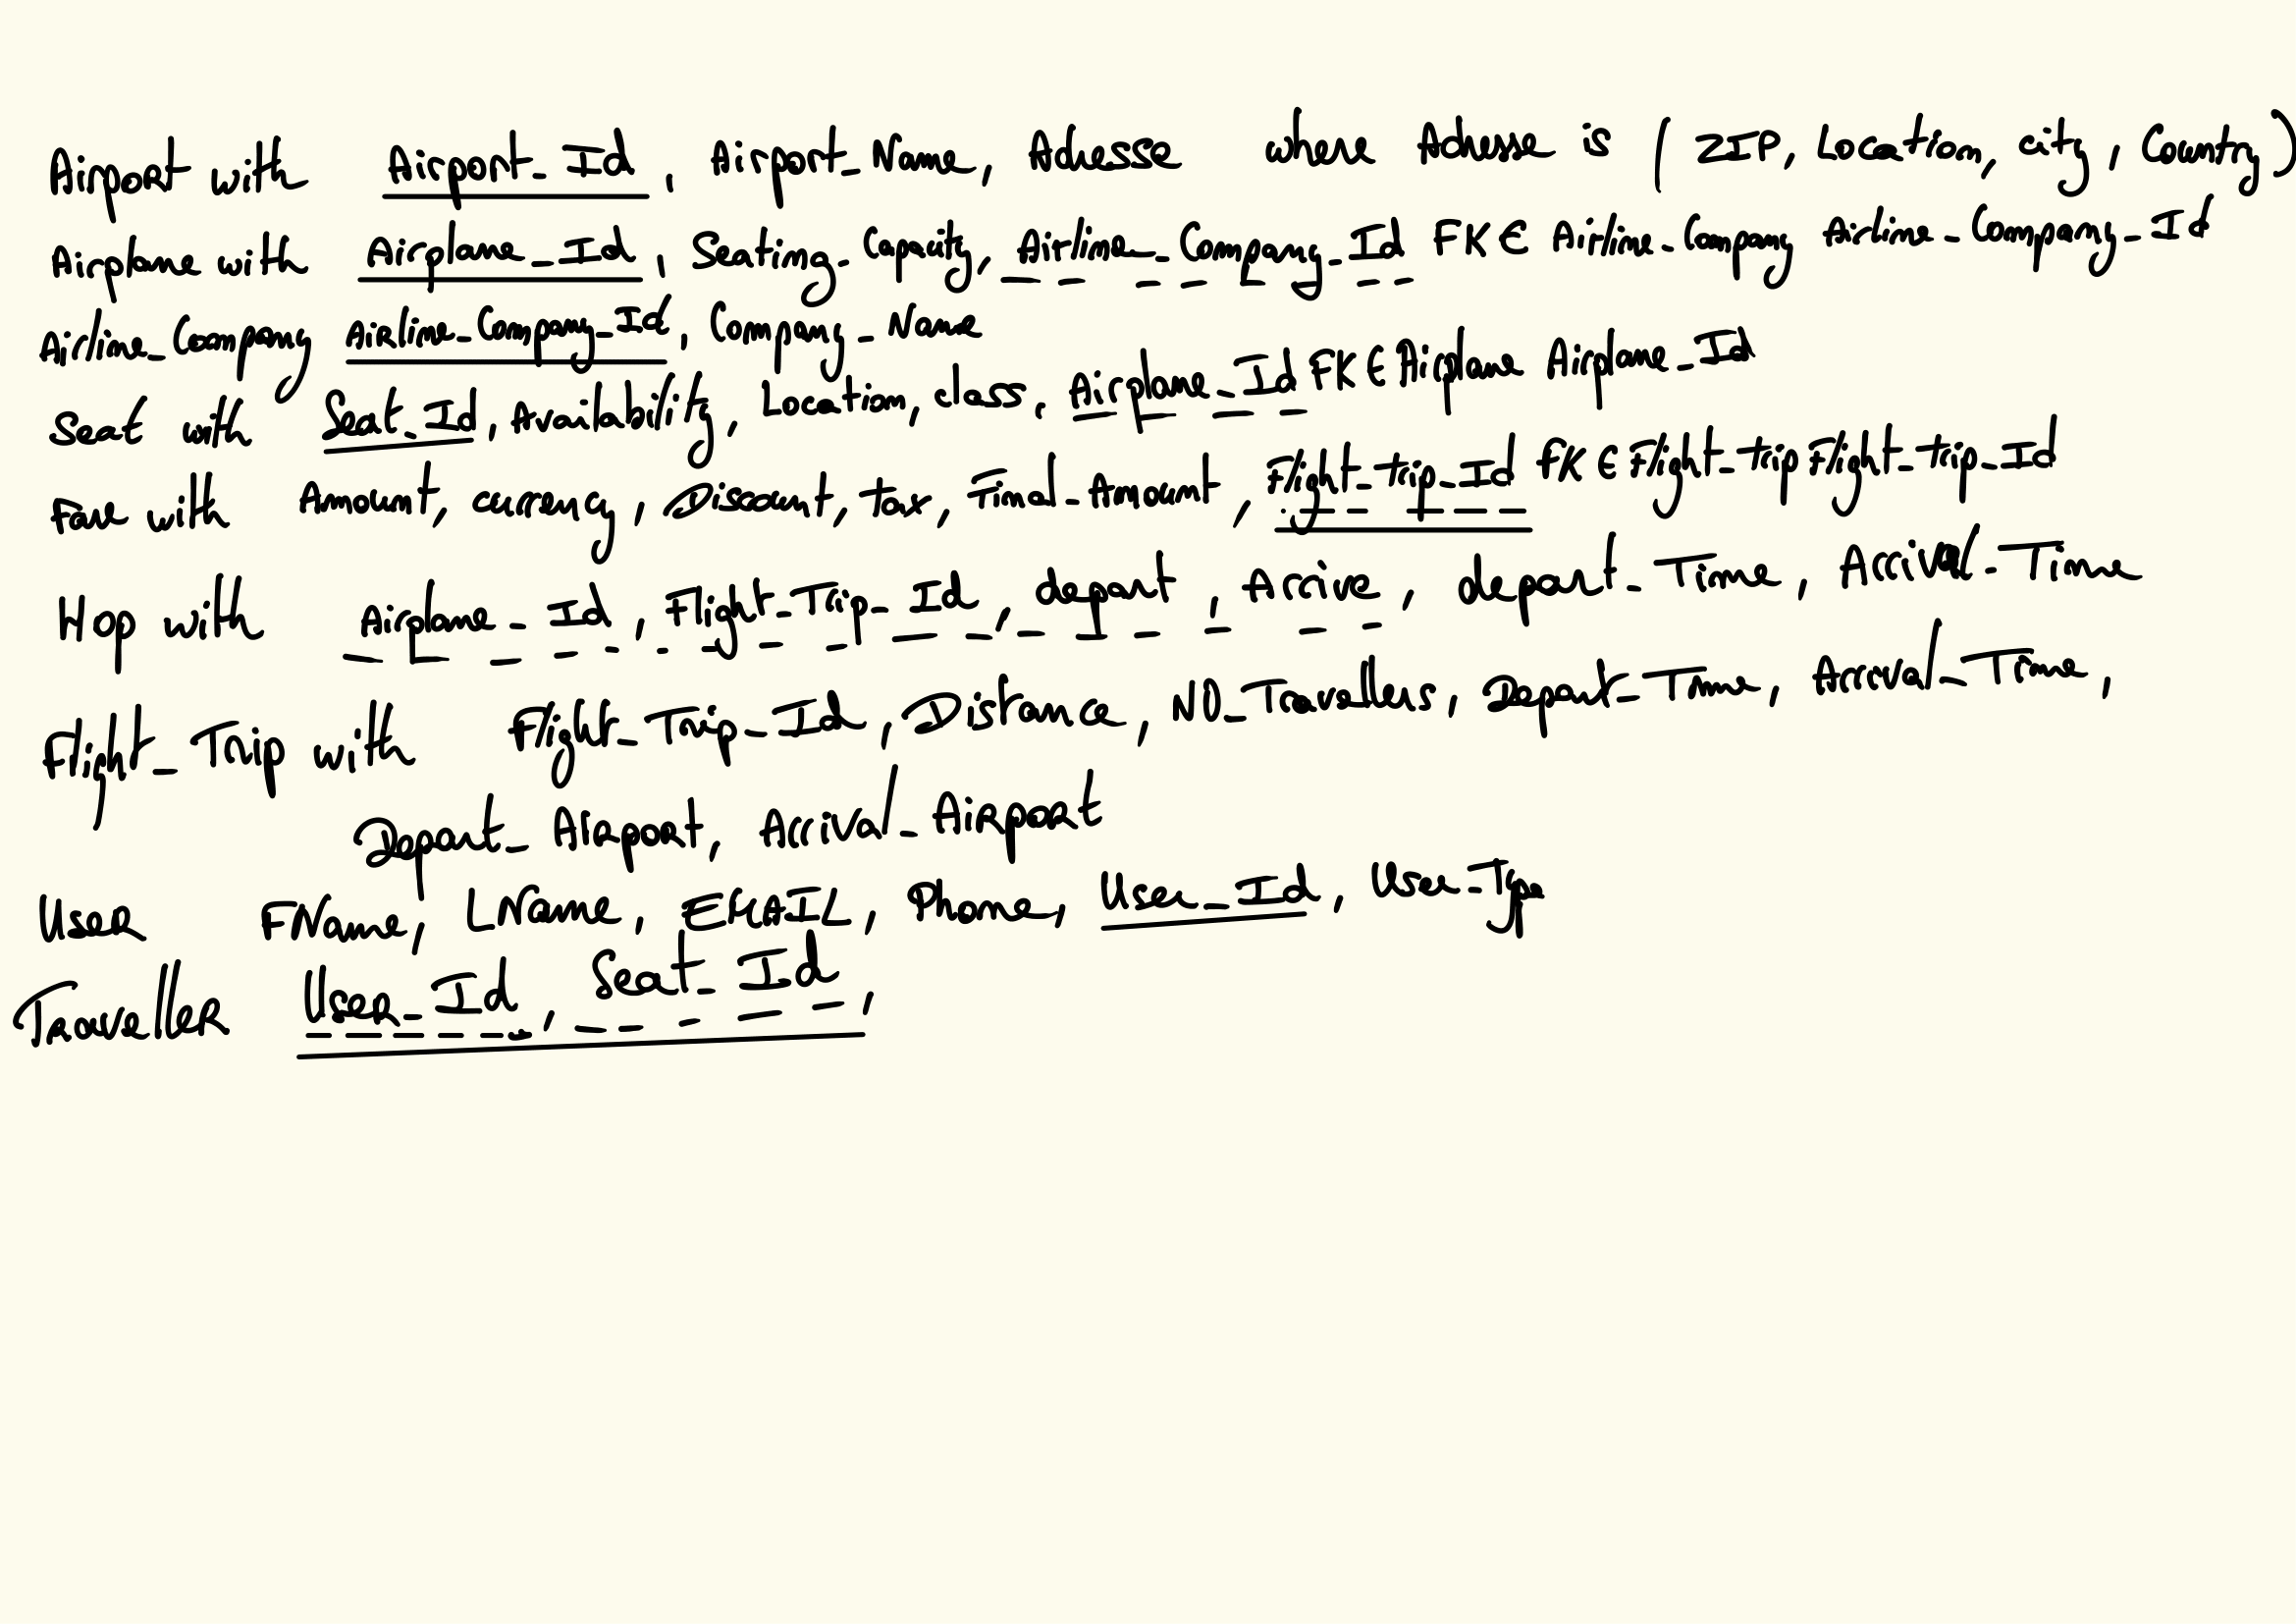 Airport with Airport_Id, Airport_Name, Adresse where Adresse is (ZIP, Location, city, Country)
Airplane with Airplane_Id, Seating_Capacity, Airline_Company_Id FK € Airline_Company Airline_Company_Id
Airline_Company Airline_Company_Id, Company_Name
Seat with Seat_Id, Availability, Location, class, Airplane_Id FK € Airplane Airplane_Id
Fare with Amount, currency, Discount, Tax, Final_Amount, Flight_trip_Id FK € Flight_trip Flight_trip_Id
Hop with Airplane_Id, Flight_Trip_Id, depart, Arrive, depart_Time, Arrival_Time
Flight_Trip with Flight_Trip_Id, Distance, NO_Travellers, Depart_Time, Arrival_Time,
Depart_Airport, Arrival_Airport
User FName, LName, EMAIL, Phone, User_Id, User_Type
Traveller User_Id, Seat_Id,